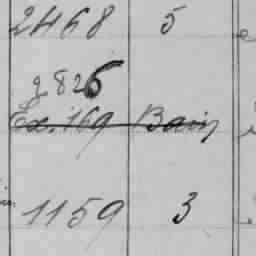 2468 5
2826
Ex. 169 Bain
1159 3